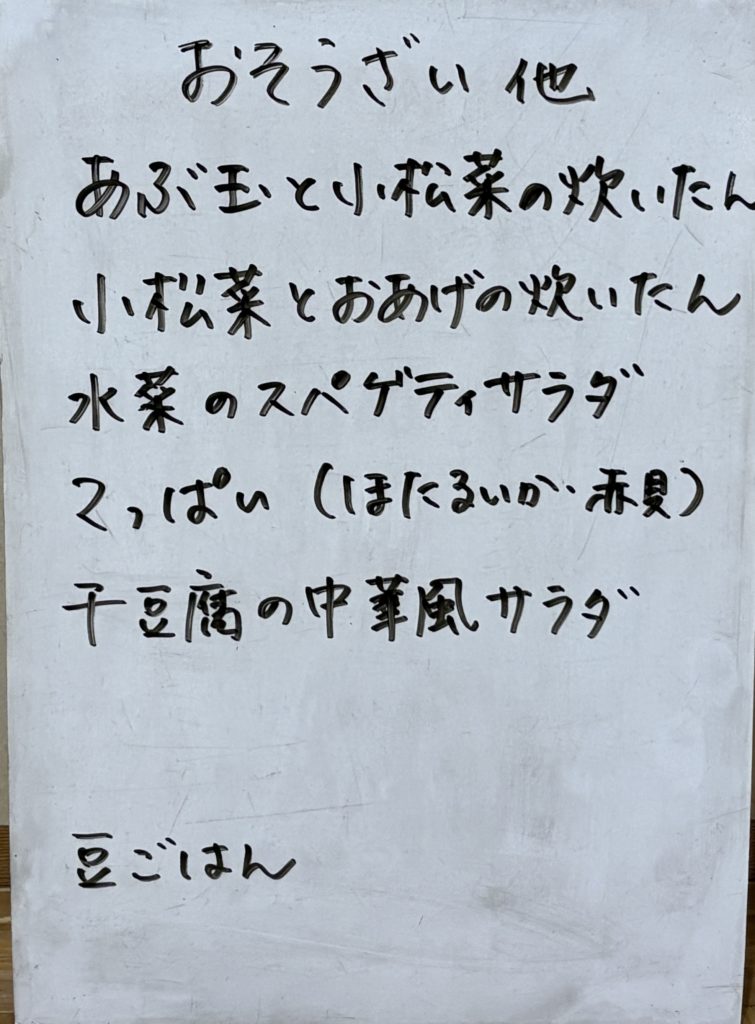 おそうざい 他
あぶ玉と小松菜の炊いたん
小松菜とおあげの炊いたん
水菜のスパゲティサラダ
てっぱい（ほたるいか・赤貝）
干豆腐の中華風サラダ
豆ごはん